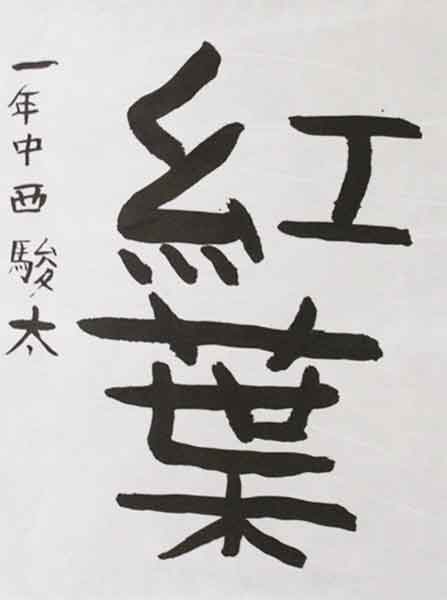 紅葉
一年中西駿太